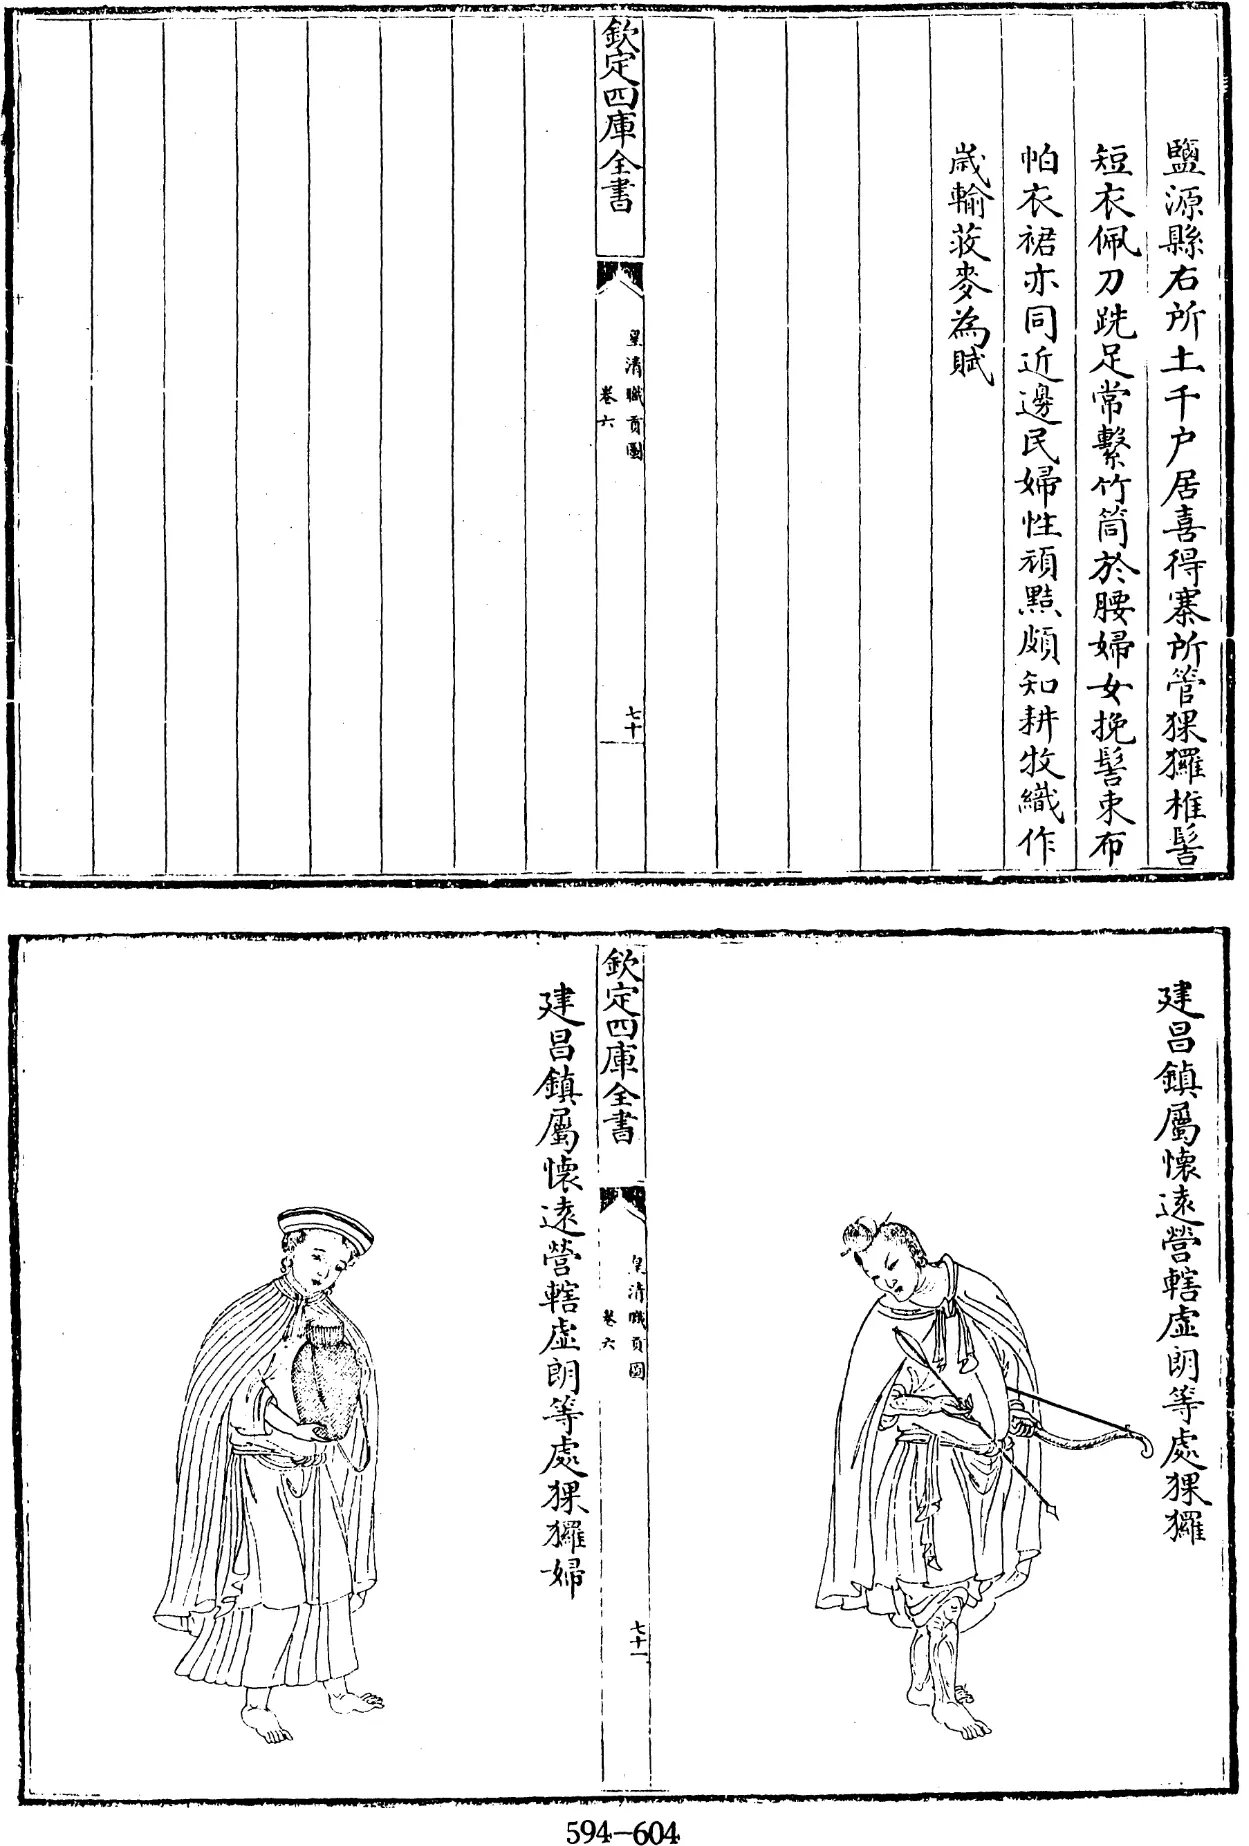 鹽源縣右所土千户居喜得寨所管猓玀椎髻
短衣佩刀跣足常繫竹筒於腰婦女挽髻束布
帕衣裙亦同近邊民婦性頑黠頗知耕牧織作
歲輸荍麥為賦
欽定四庫全書
皇清職貢圖
卷六
七十
建昌鎮屬懷遠營轄虛朗等處猓玀
欽定四庫全書
皇清職貢圖
卷六
七十一
建昌鎮屬懷遠營轄虛朗等處猓玀婦
594-604